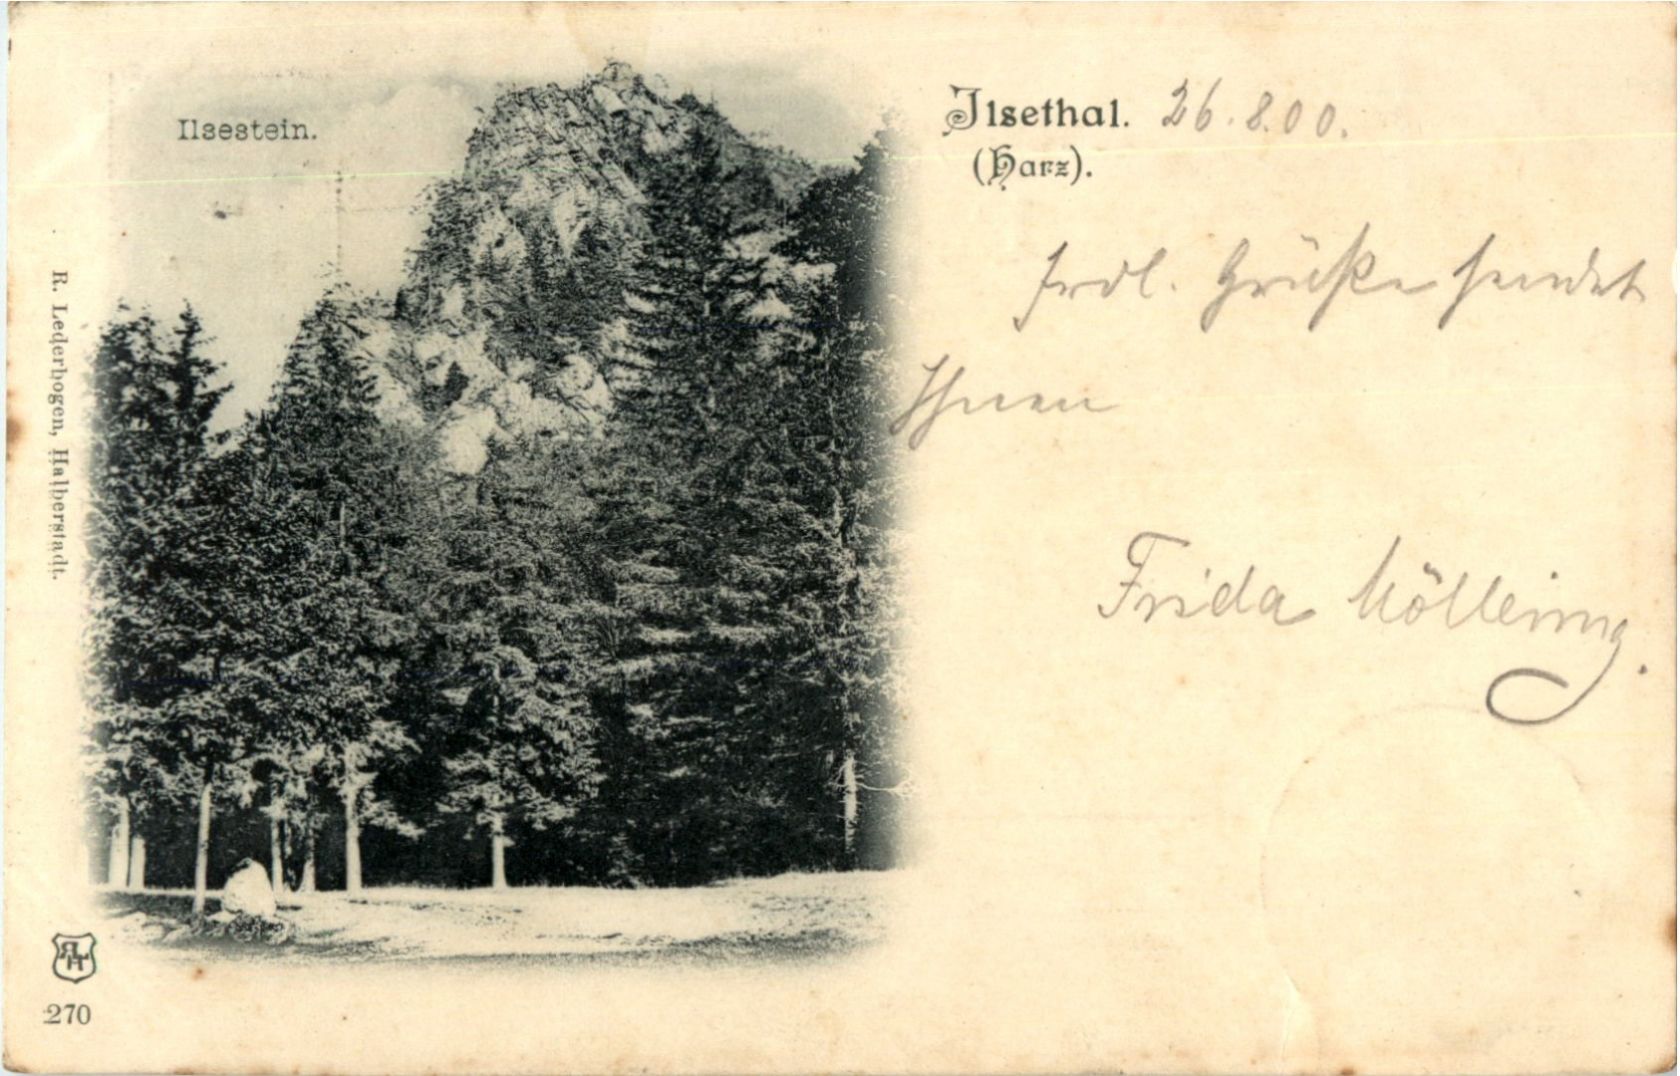 Ilsestein.
Ilsethal. 26.8.00.
(Harz).
frdl. Grüße sendet
Ihnen
Frida
R. Lederbogen, Halberstadt.
270